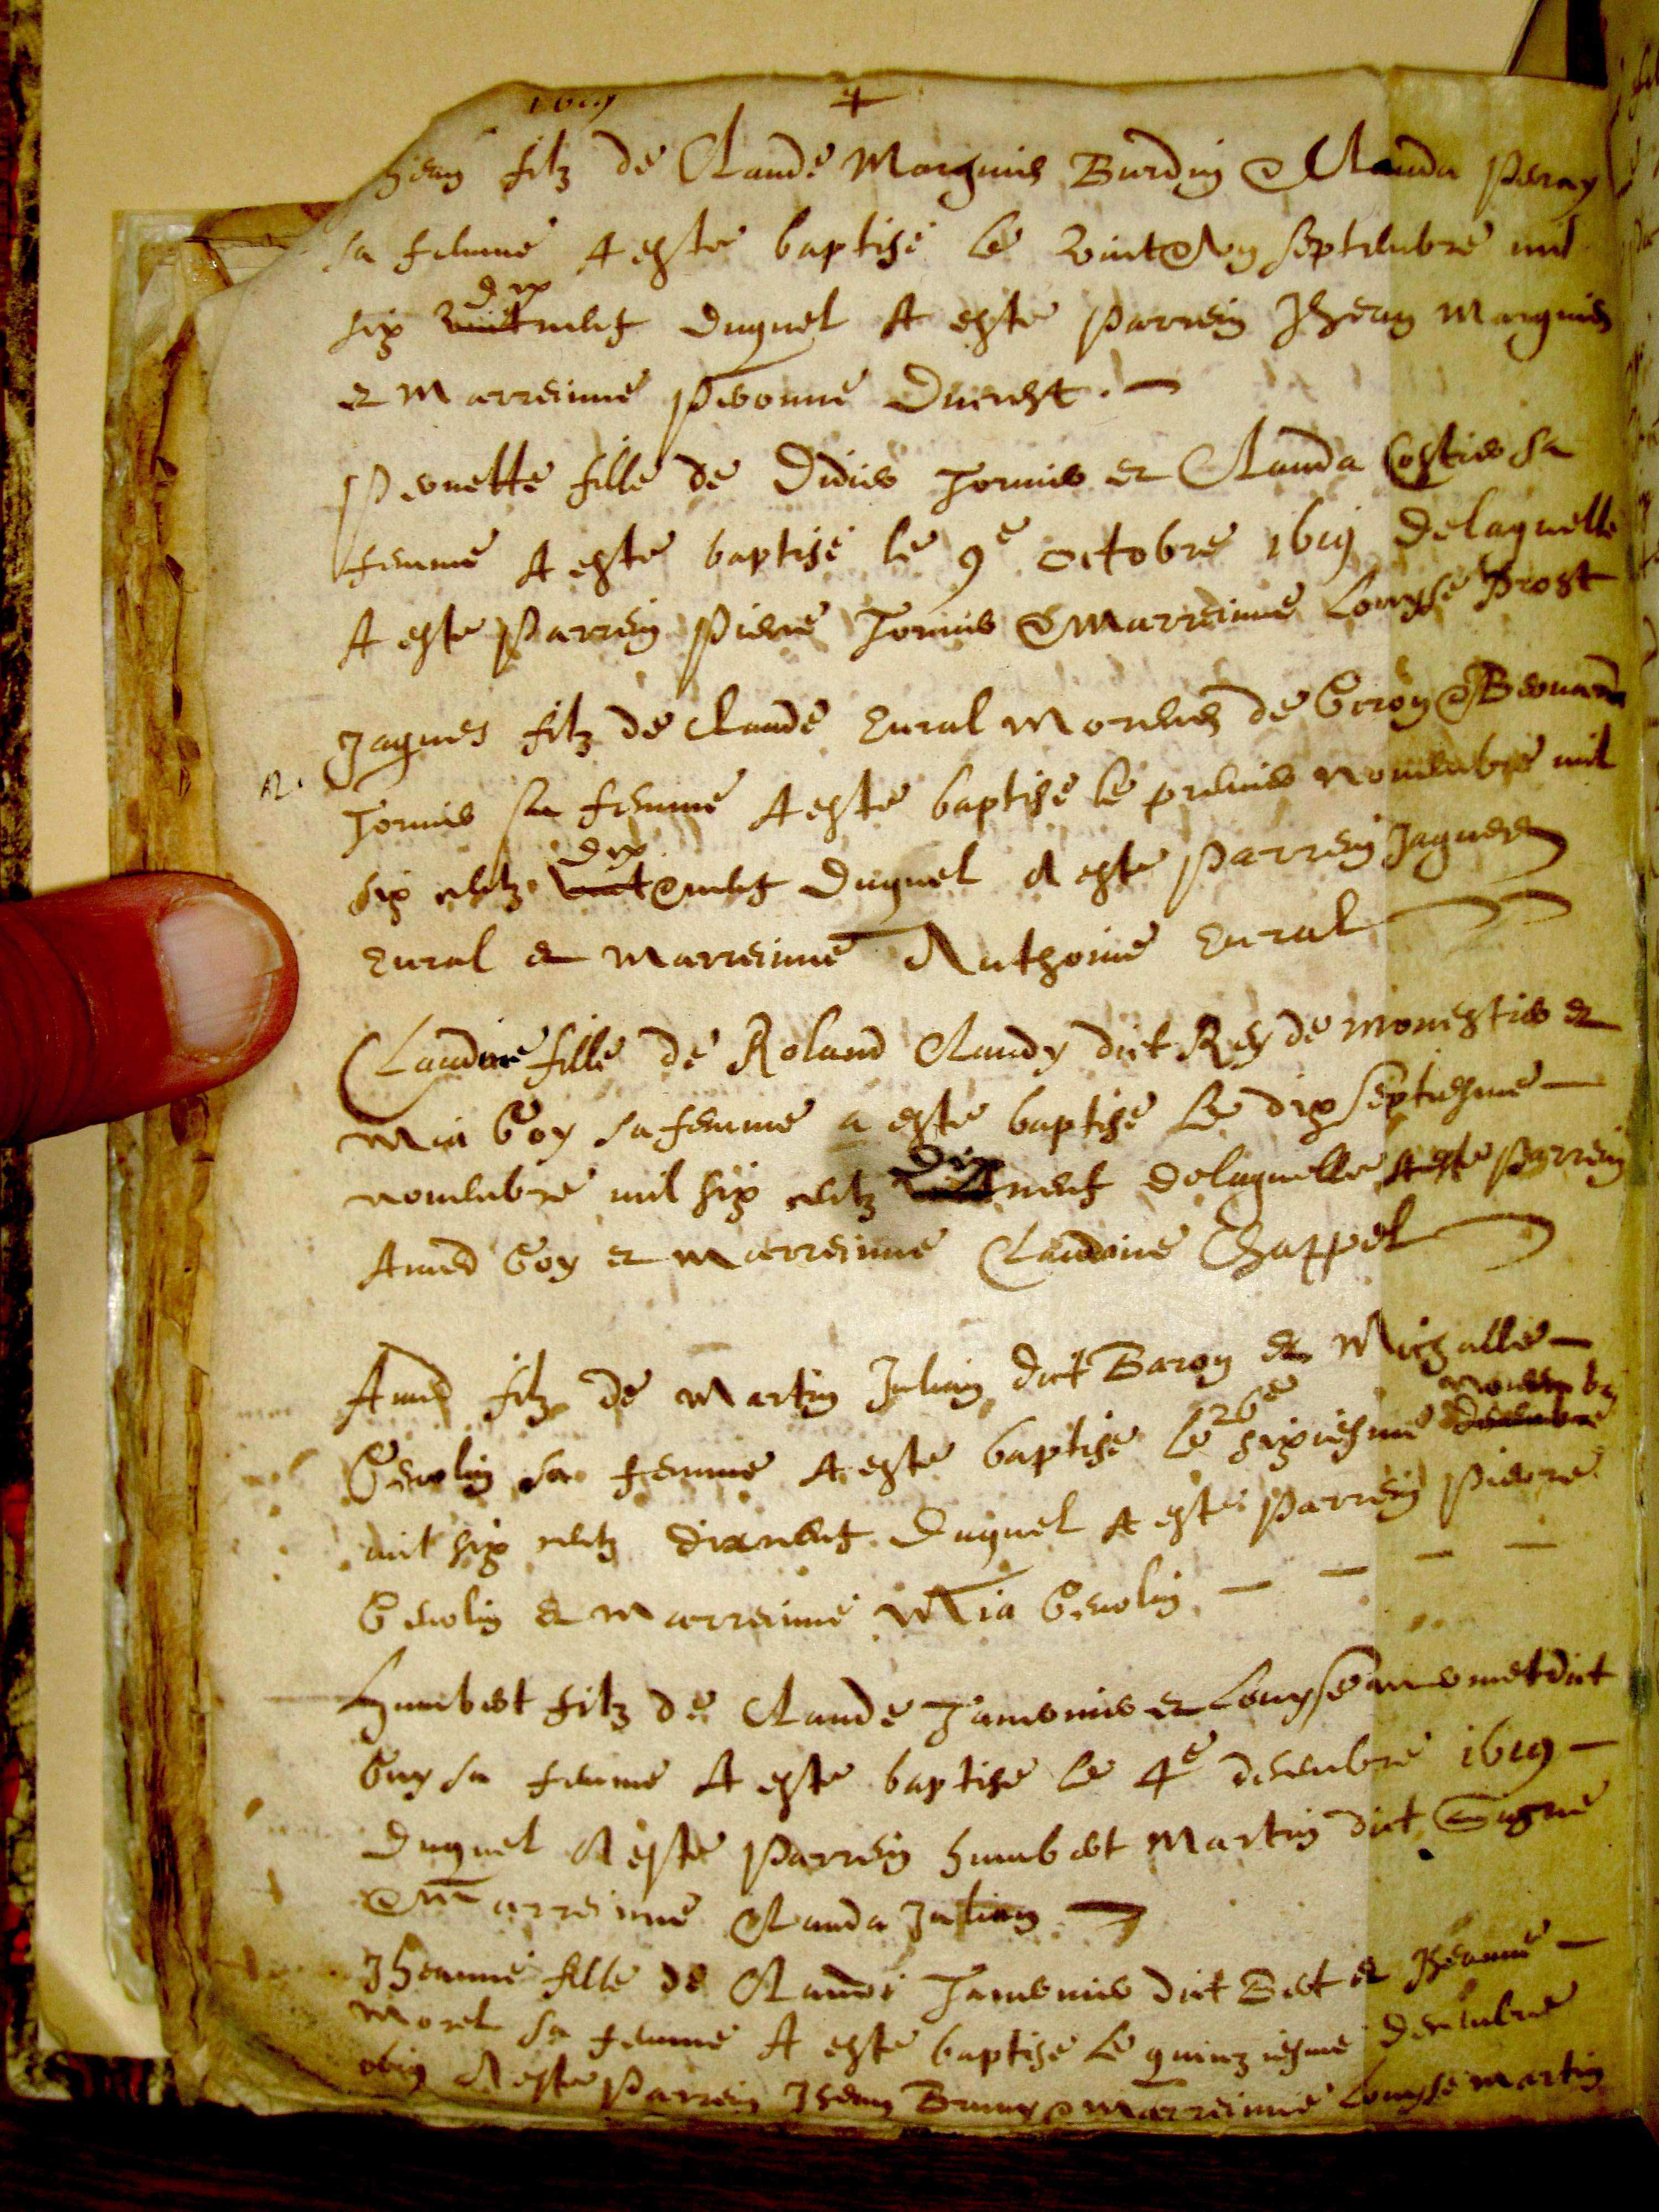 1619
Jhean filz de Claude Marguin Burdin & Clauda Peray
sa femme A este baptise le vint & ung septembre mil
six dix neuf duquel A este parrein Jhean Marguin
et marreinne Pernonne Ducrest .
Pernette fille de Didier Tornier et Clauda Costier sa
femme A este baptise le 9e octobre 1619 delaquelle
A este parrein Pierre Tornier & marreinne Louyse Prost
Jaques filz de Claude Cural de & Bernarde
Tornier sa femme A este baptise le premier novembre mil
six centz dix neuf duquel A este parrein Jaques
Cural et marreinne Anthoine Cural
Claudine fille de Roland Claudy dict Rey de monestier et
Mia Goy sa femme a este baptise le dixseptiesme
novembre mil six centz dix neuf delaquelle A este parrein
Amed Goy et marreinne Claudine Chappel
Amed filz de Martin Julian dict Baron et Michalle
Gerolin sa femme A este baptise le 26e sixiesme novembre
mil six centz dixneuf duquel A este parrein Pierre
Gerolin et marreinne Mia Gerolin
Humbert filz de Claude Janvenier et Louyse dict
Guy sa femme A este baptise le 4e decembre 1619
Duquel A este parrein humbert Martin dict
& marreinne Clauda Julian
Jheanne fille de Claude Janvenier dict et Jheanne
Morel sa femme A este baptise le quinziesme decembre
1619 A este parrein Jhean Bruny & marreinne Louyse Martin